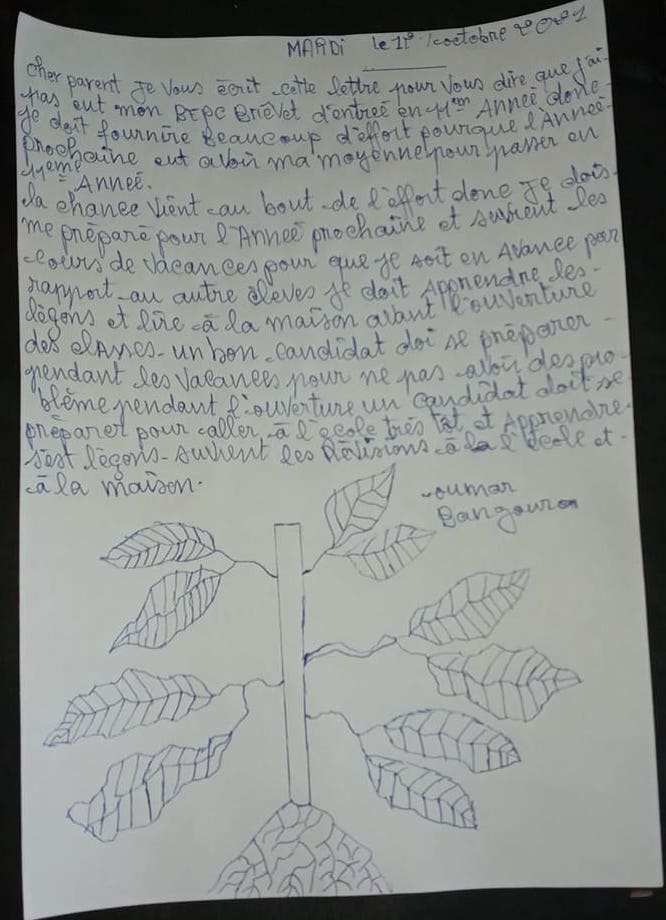 MARDI le 12 / octobre 2021
cher parent Je vous écrit cette lettre pour vous dire que j'ai-
pas eut mon BEPC Brévet d'entrée en 11em Année donc-
je doit fournire Beaucoup d'effort pourque l'Année-
prochaîne eut avoir ma moyenne pour passer en
11ème Année.
la chance vient au bout de l'effort donc Je dois-
me préparé pour l'Année prochaîne et suvrent les
cours de vacances pour que je soit en Avance par
rapport au autre élèves je doit Apprendre les-
lêçons et lire à la maison avant l'ouverture
des classes. un bon candidat doi se préparer-
pendant les vacances pour ne pas avoir des pro-
blème pendant l'ouverture un candidat doit se-
préparer pour aller à l'école très tôt et Apprendre-
s'est lêçons. suvrent les Révisions à la l'école et-
à la maison.
oumar
Bangoura